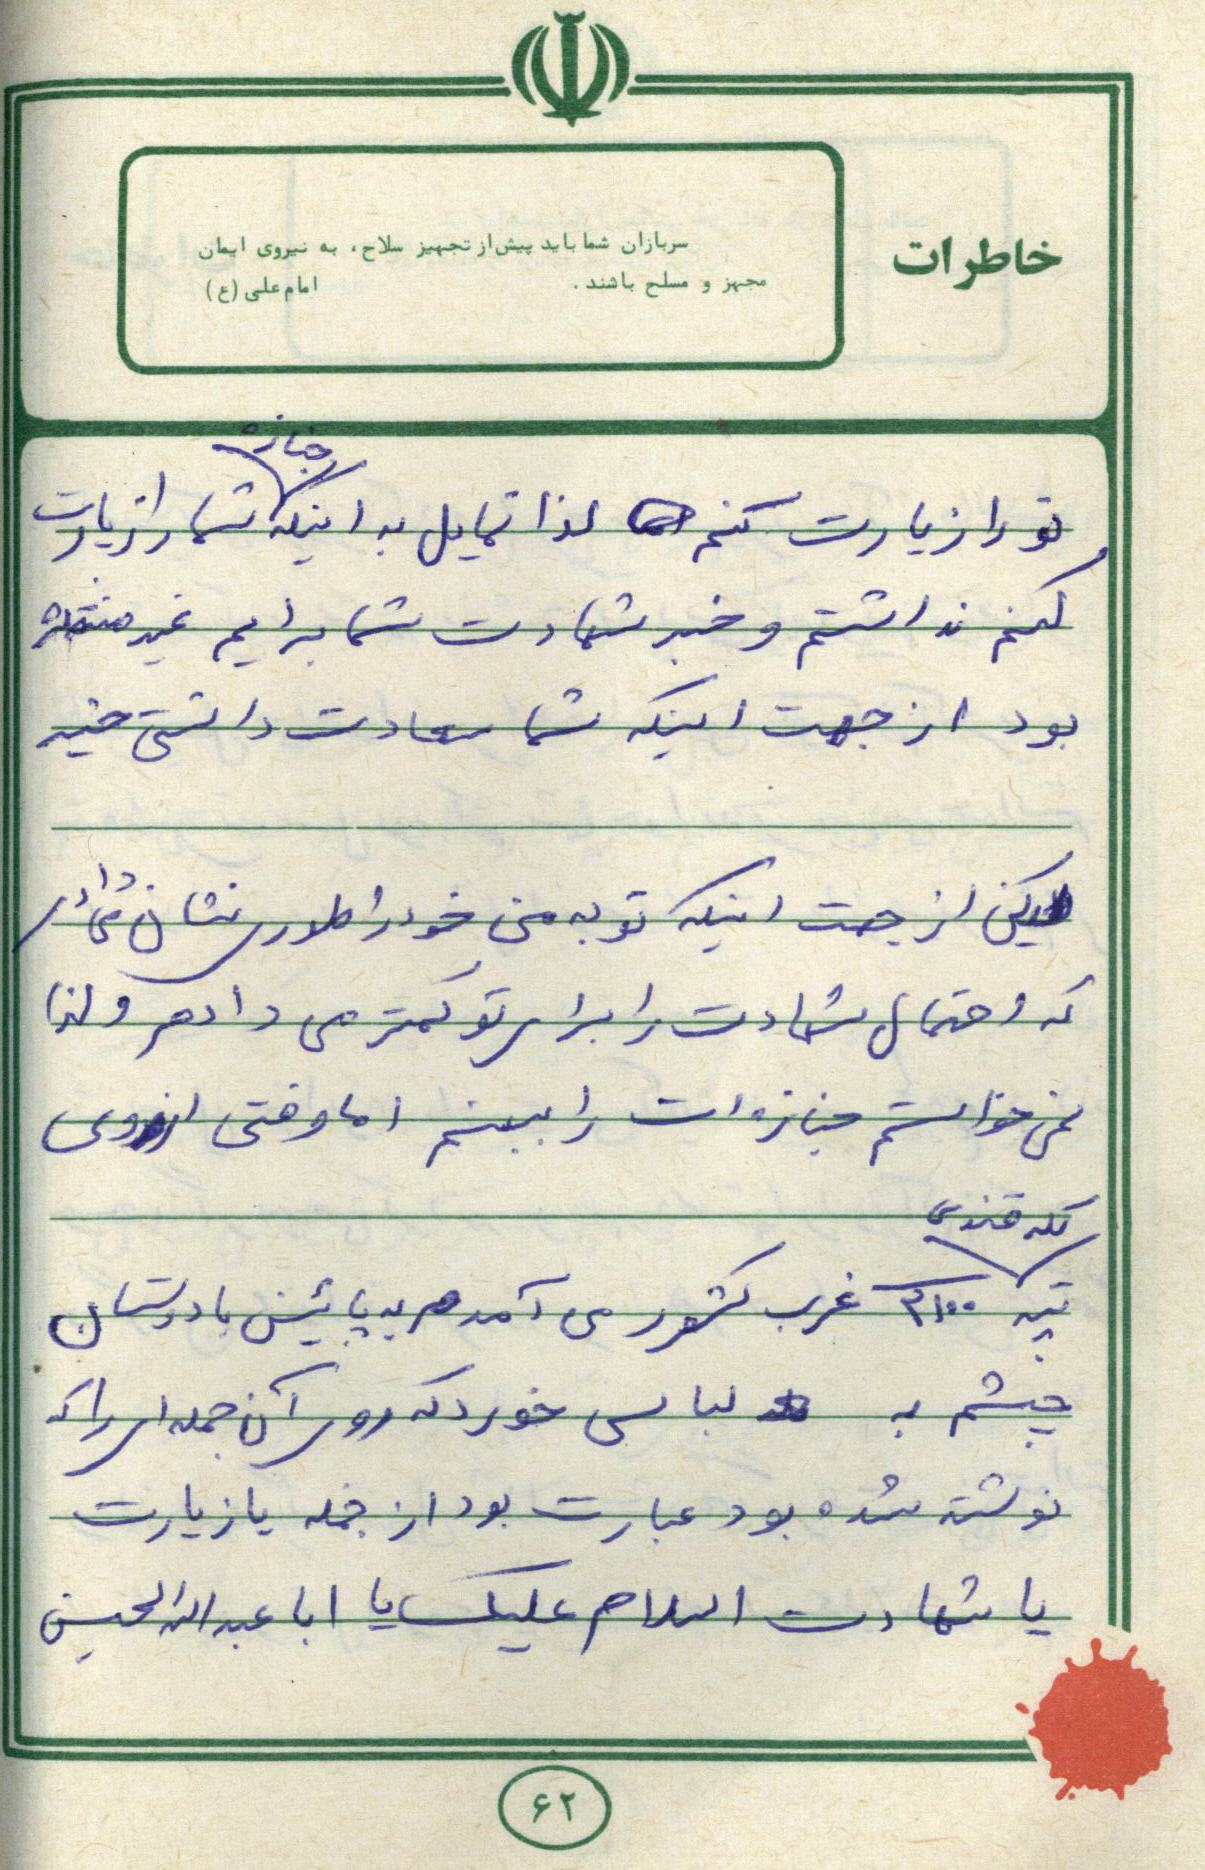 خاطرات
سربازان شما باید پیش از تجهیز سلاح، به نیروی ایمان
مجهز و مسلح باشند. امام علی (ع)
جنازه
تو را زیارت کنم لذا تمایل به اینکه شما را زیارت
کنم نداشتم و خبر شهادت شما برایم غیر منتظره
بود از جهت اینکه شما سعادت داشتی خیر
لیکن از جهت اینکه تو به من خود را طوری نشان می‌دادی
که احتمال شهادت را برای تو کمتر می دادم و لذا
نمی خواستم جنازه ات را ببینم اما وقتی از روی
کله قندی
تپه ۲۱۰۰ غرب کشور می آمدم به پائین با دوستان
چشم به لباسی خورد که روی آن جمله ای را که
نوشته شده بود عبارت بود از جمله یا زیارت
یا شهادت السلام علیک یا ابا عبدالله الحسین
۶۲